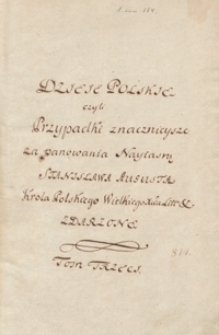 DZIEJE POLSKIE
czyli
Przypadki znacznieysze
za panowania Nayiasn
STANISŁAWA AUGUSTA
Krola Polskiego Wielkiego Xcia Litt &
ZDARZONE
TOM TRZECI.